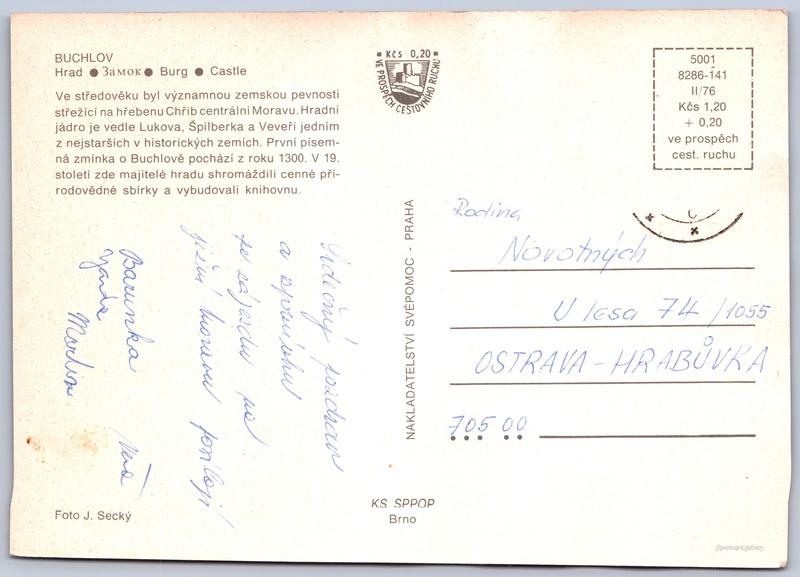 BUCHLOV
Hrad ● Замок ● Burg ● Castle
Ve středověku byl významnou zemskou pevností
střežící na hřebenu Chřib centrální Moravu. Hradní
jádro je vedle Lukova, Špilberka a Veveří jedním
z nejstarších v historických zemích. První písem-
ná zmínka o Buchlově pochází z roku 1300. V 19.
století zde majitelé hradu shromáždili cenné pří-
rodovědné sbírky a vybudovali knihovnu.
Srdečný pozdrav
a vzpomínku
ze zájezdu po
jižní Moravě posílají
Barunka Věra
Jarda
Martin
Foto J. Secký
Kčs 0,20
VE PROSPĚCH CESTOVNÍHO RUCHU
NAKLADATELSTVÍ SVÉPOMOC - PRAHA
KS SPPOP
Brno
5001
8286-141
II/76
Kčs 1,20
+ 0,20
ve prospěch
cest. ruchu
Rodina
Novotných
U lesa 74 /1055
OSTRAVA - HRABŮVKA
705 00